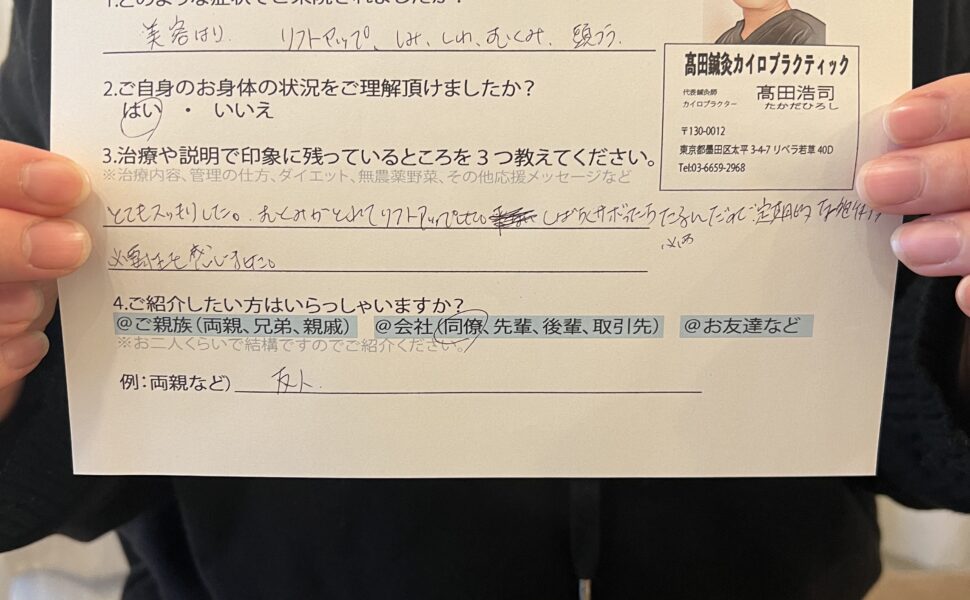 1.どのような症状でご来院されましたか?
美容はり. リフトアップ、しみ、しわ、むくみ、頭
2.ご自身のお身体の状況をご理解頂けましたか?
はい ・ いいえ
3.治療や説明で印象に残っているところを3つ教えてください。
※治療内容、管理の仕方、ダイエット、無農薬野菜、その他応援メッセージなど
とてもスッキりしました。むくみがとれてリフトアップ しばらくサボったら たるんだので定期的な
必要性を感じました。
4.ご紹介したい方はいらっしゃいますか?
@ご親族(両親、兄弟、親戚) @会社(同僚、先輩、後輩、取引先) @お友達など
※お二人くらいで結構ですのでご紹介ください。
例:両親など) 友人.
髙田鍼灸カイロプラクティック
代表鍼灸師 髙田浩司
カイロプラクター たかだひろし
〒130-0012
東京都墨田区太平 3-4-7 リベラ若草 40D
Tel:03-6659-2968